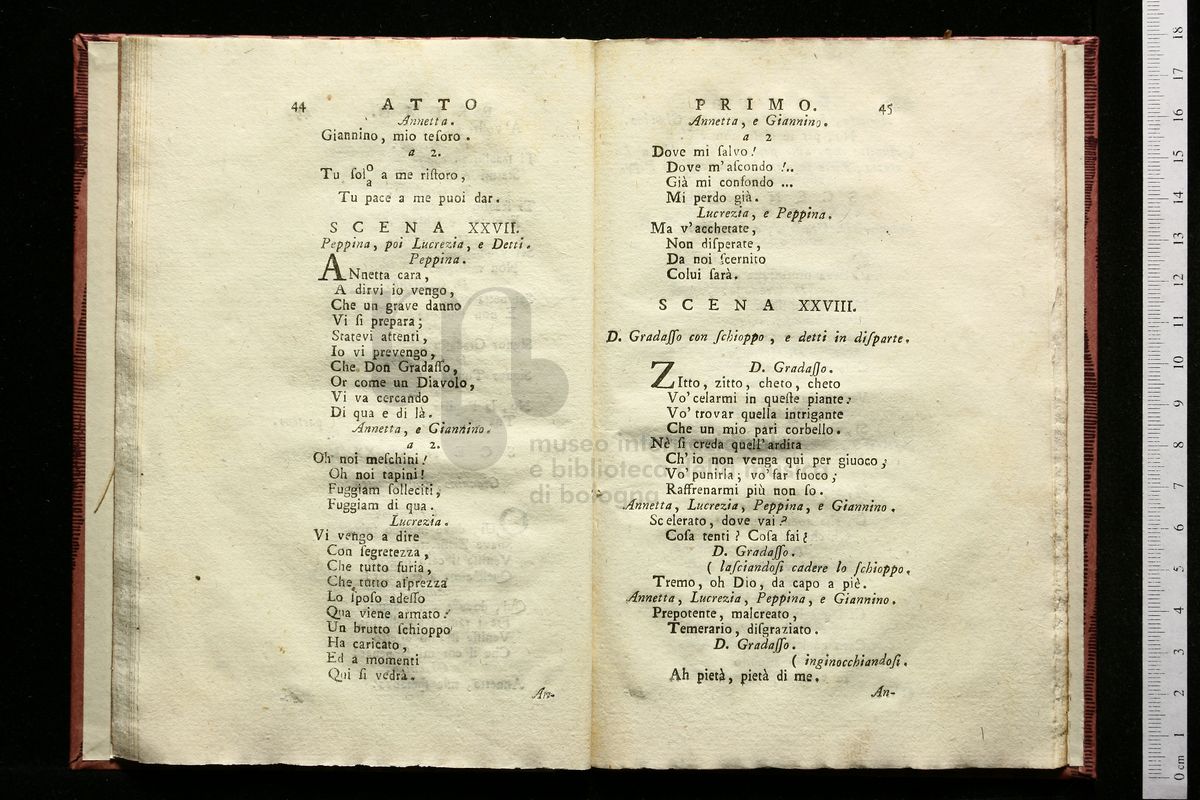 44 ATTO
Annetta.
Giannino, mio teſoro.
a 2.
Tu ſol o/a a me riſtoro,
Tu pace a me puoi dar.
SCENA XXVII.
Peppina, poi Lucrezia, e Detti.
Peppina.
ANnetta cara,
A dirvi io vengo,
Che un grave danno
Vi ſi prepara;
Statevi attenti,
Io vi prevengo,
Che Don Gradaſſo,
Or come un Diavolo,
Vi va cercando
Di qua e di là.
Annetta, e Giannino.
a 2.
Oh noi meſchini!
Oh noi tapini!
Fuggiam ſolleciti,
Fuggiam di qua.
Lucrezia.
Vi vengo a dire
Con ſegretezza,
Che tutto furia,
Che tutto aſprezza
Lo ſpoſo adeſſo
Qua viene armato:
Un brutto ſchioppo
Ha caricato,
Ed a momenti
Qui ſi vedrà.
An-
PRIMO. 45
Annetta, e Giannino.
a 2
Dove mi ſalvo!
Dove m'aſcondo!..
Già mi confondo ...
Mi perdo già.
Lucrezia, e Peppina.
Ma v'acchetate,
Non diſperate,
Da noi ſcernito
Colui ſarà.
SCENA XXVIII.
D. Gradaſſo con ſchioppo, e detti in diſparte.
D. Gradaſſo.
ZItto, zitto, cheto, cheto
Vo' celarmi in queſte piante:
Vo' trovar quella intrigante
Che un mio pari corbello.
Nè ſi creda quell'ardita
Ch'io non venga qui per giuoco;
Vo' punirla; vo' far fuoco;
Raffrenarmi più non ſo.
Annetta, Lucrezia, Peppina, e Giannino.
Scelerato, dove vai?
Coſa tenti? Coſa fai?
D. Gradaſſo.
( laſciandoſi cadere lo ſchioppo.
Tremo, oh Dio, da capo a piè.
Annetta, Lucrezia, Peppina, e Giannino.
Prepotente, malcreato,
Temerario, diſgraziato.
D. Gradaſſo.
( inginocchiandoſi.
Ah pietà, pietà di me.
An-
museo
e biblioteca
di bologna
0 cm 1 2 3 4 5 6 7 8 9 10 11 12 13 14 15 16 17 18